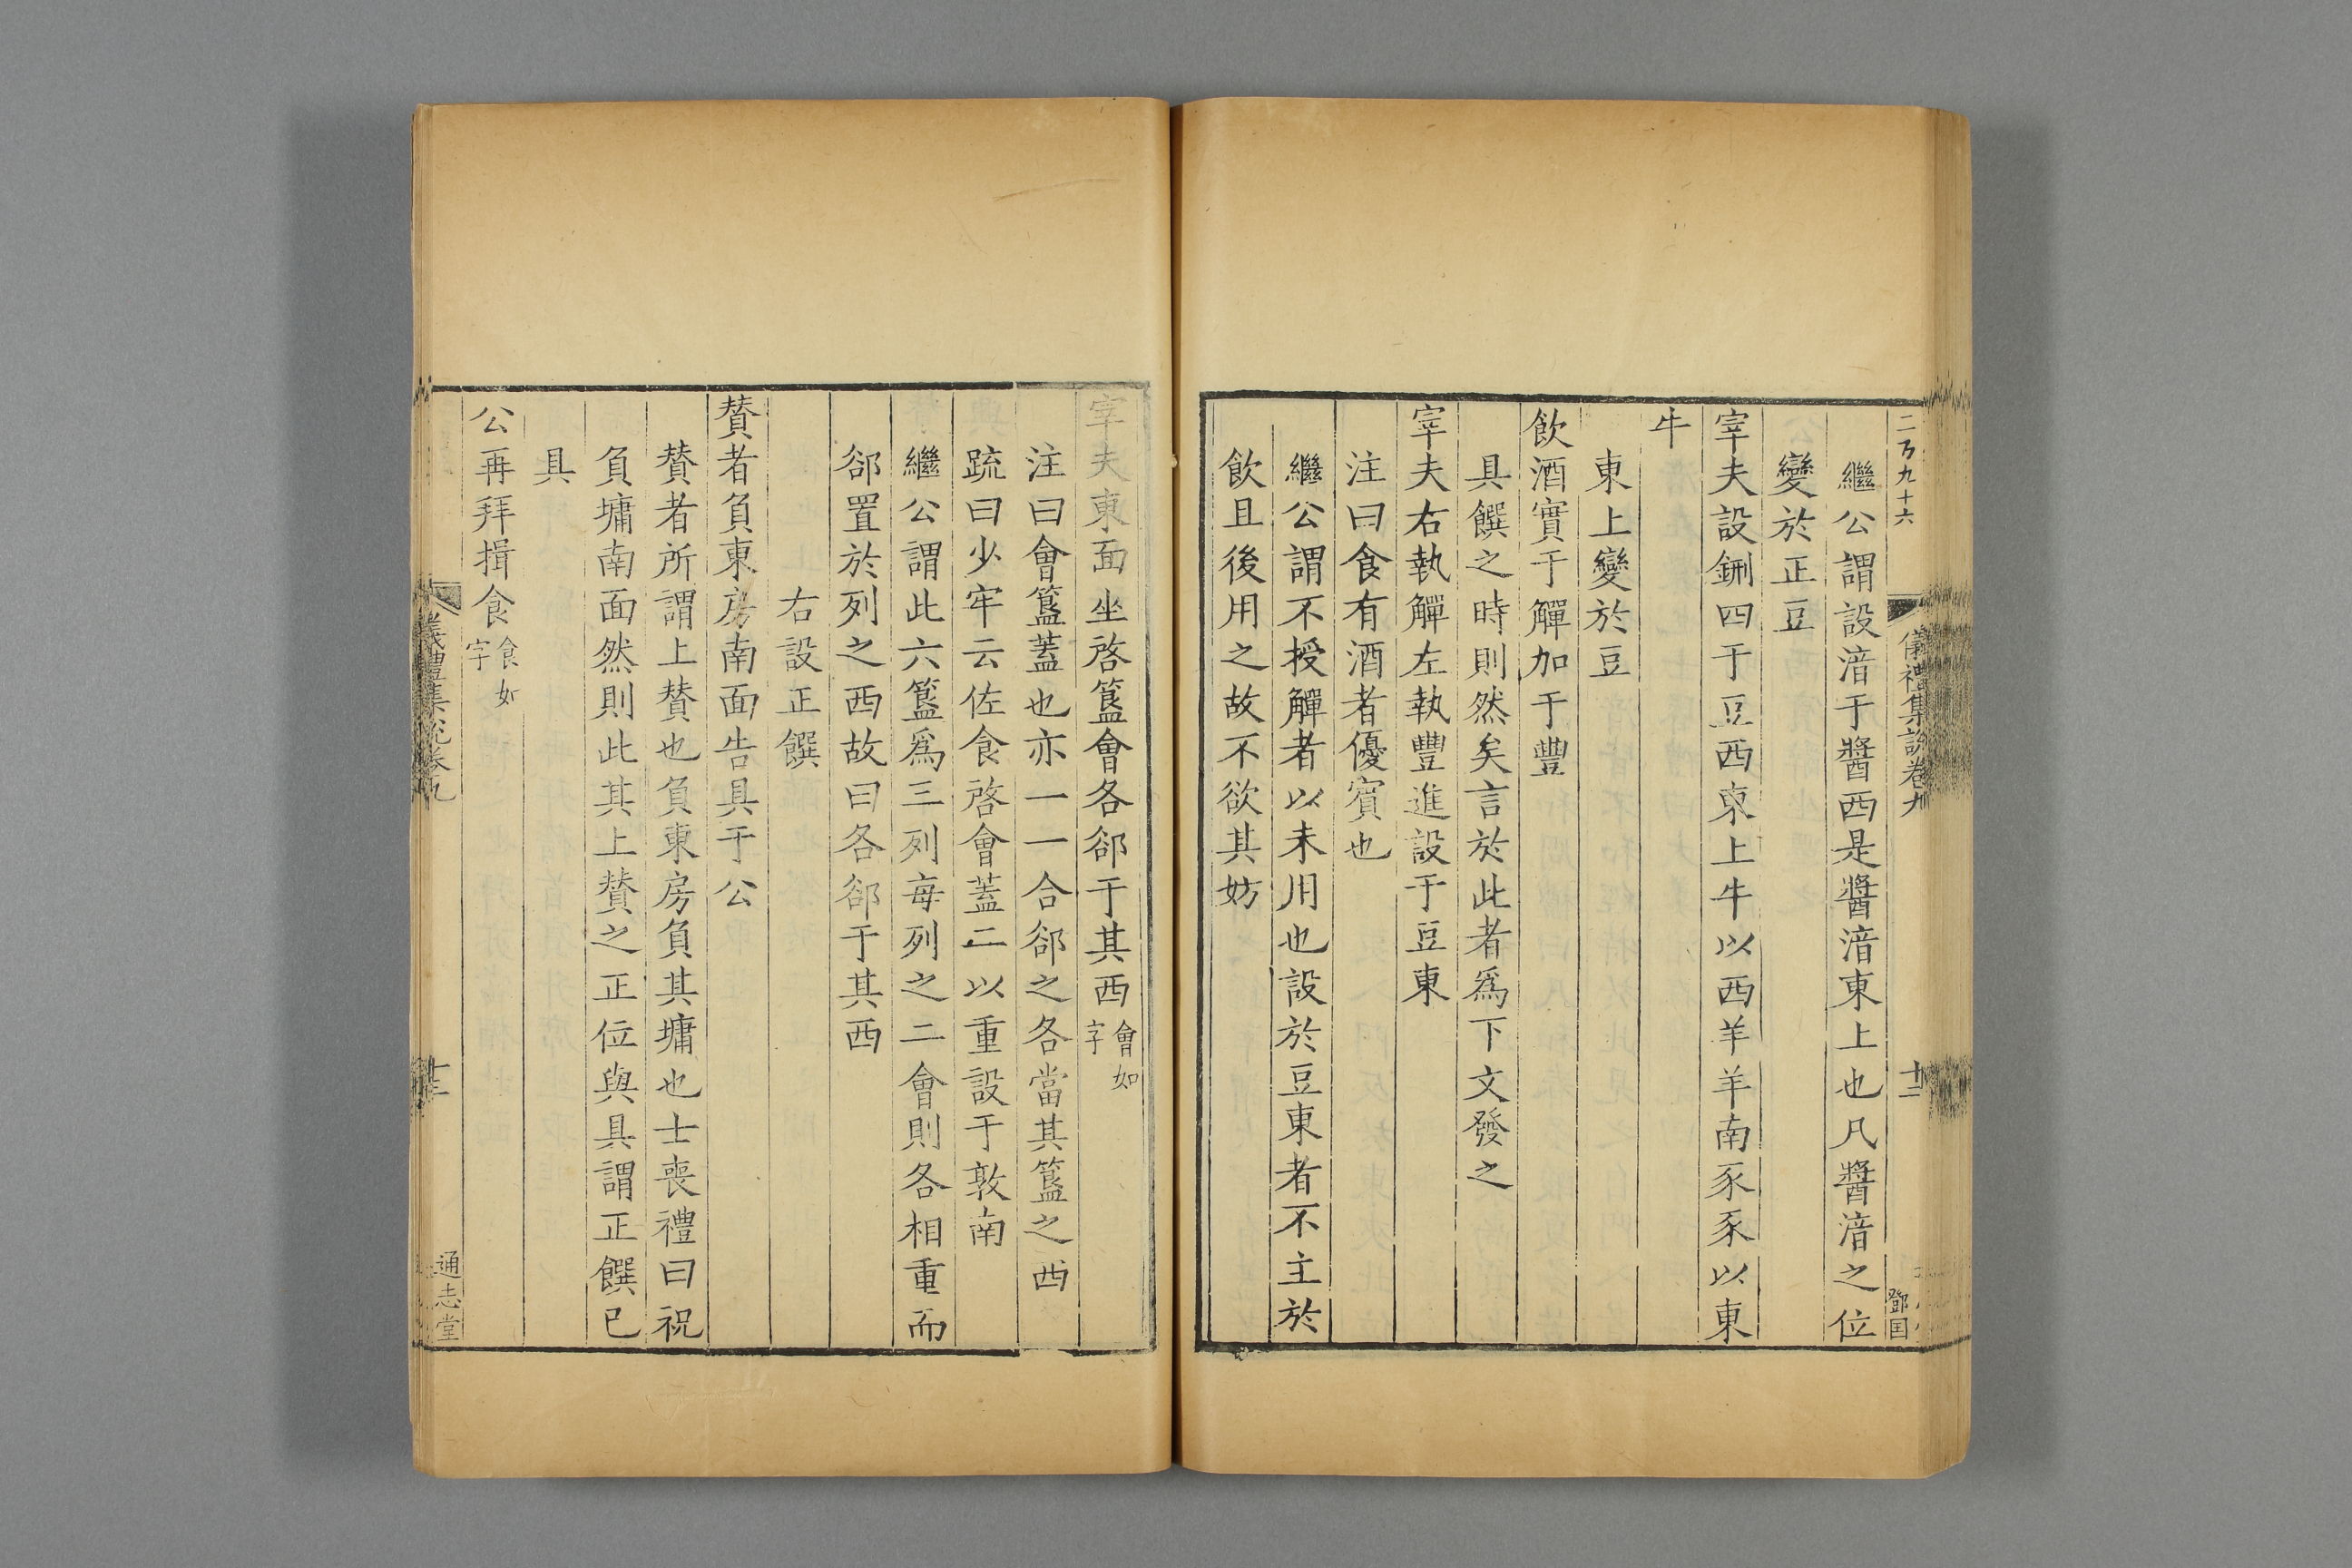 二百九十六
儀禮集說卷九
十二
鄧国
繼公謂設湇于醬西是醬湇東上也凡醬湇之位
變於正豆
宰夫設鉶四于豆西東上牛以西羊羊南豕豕以東
牛
東上變於豆
飲酒實于觶加于豐
具饌之時則然矣言於此者爲下文發之
宰夫右執觶左執豐進設于豆東
注曰食有酒者優賓也
繼公謂不授觶者以未用也設於豆東者不主於
飲且後用之故不欲其妨
宰夫東面坐啓簋會各郤于其西會如字
注曰會簋蓋也亦一一合郤之各當其簋之西
疏曰少牢云佐食啓會蓋二以重設于敦南
繼公謂此六簋爲三列每列之二會則各相重而
郤置於列之西故曰各郤于其西
右設正饌
賛者負東房南面告具于公
賛者所謂上賛也負東房負其墉也士喪禮曰祝
負墉南面然則此其上賛之正位與具謂正饌已
具
公再拜揖食食如字
儀禮集說卷九
十三
通志堂